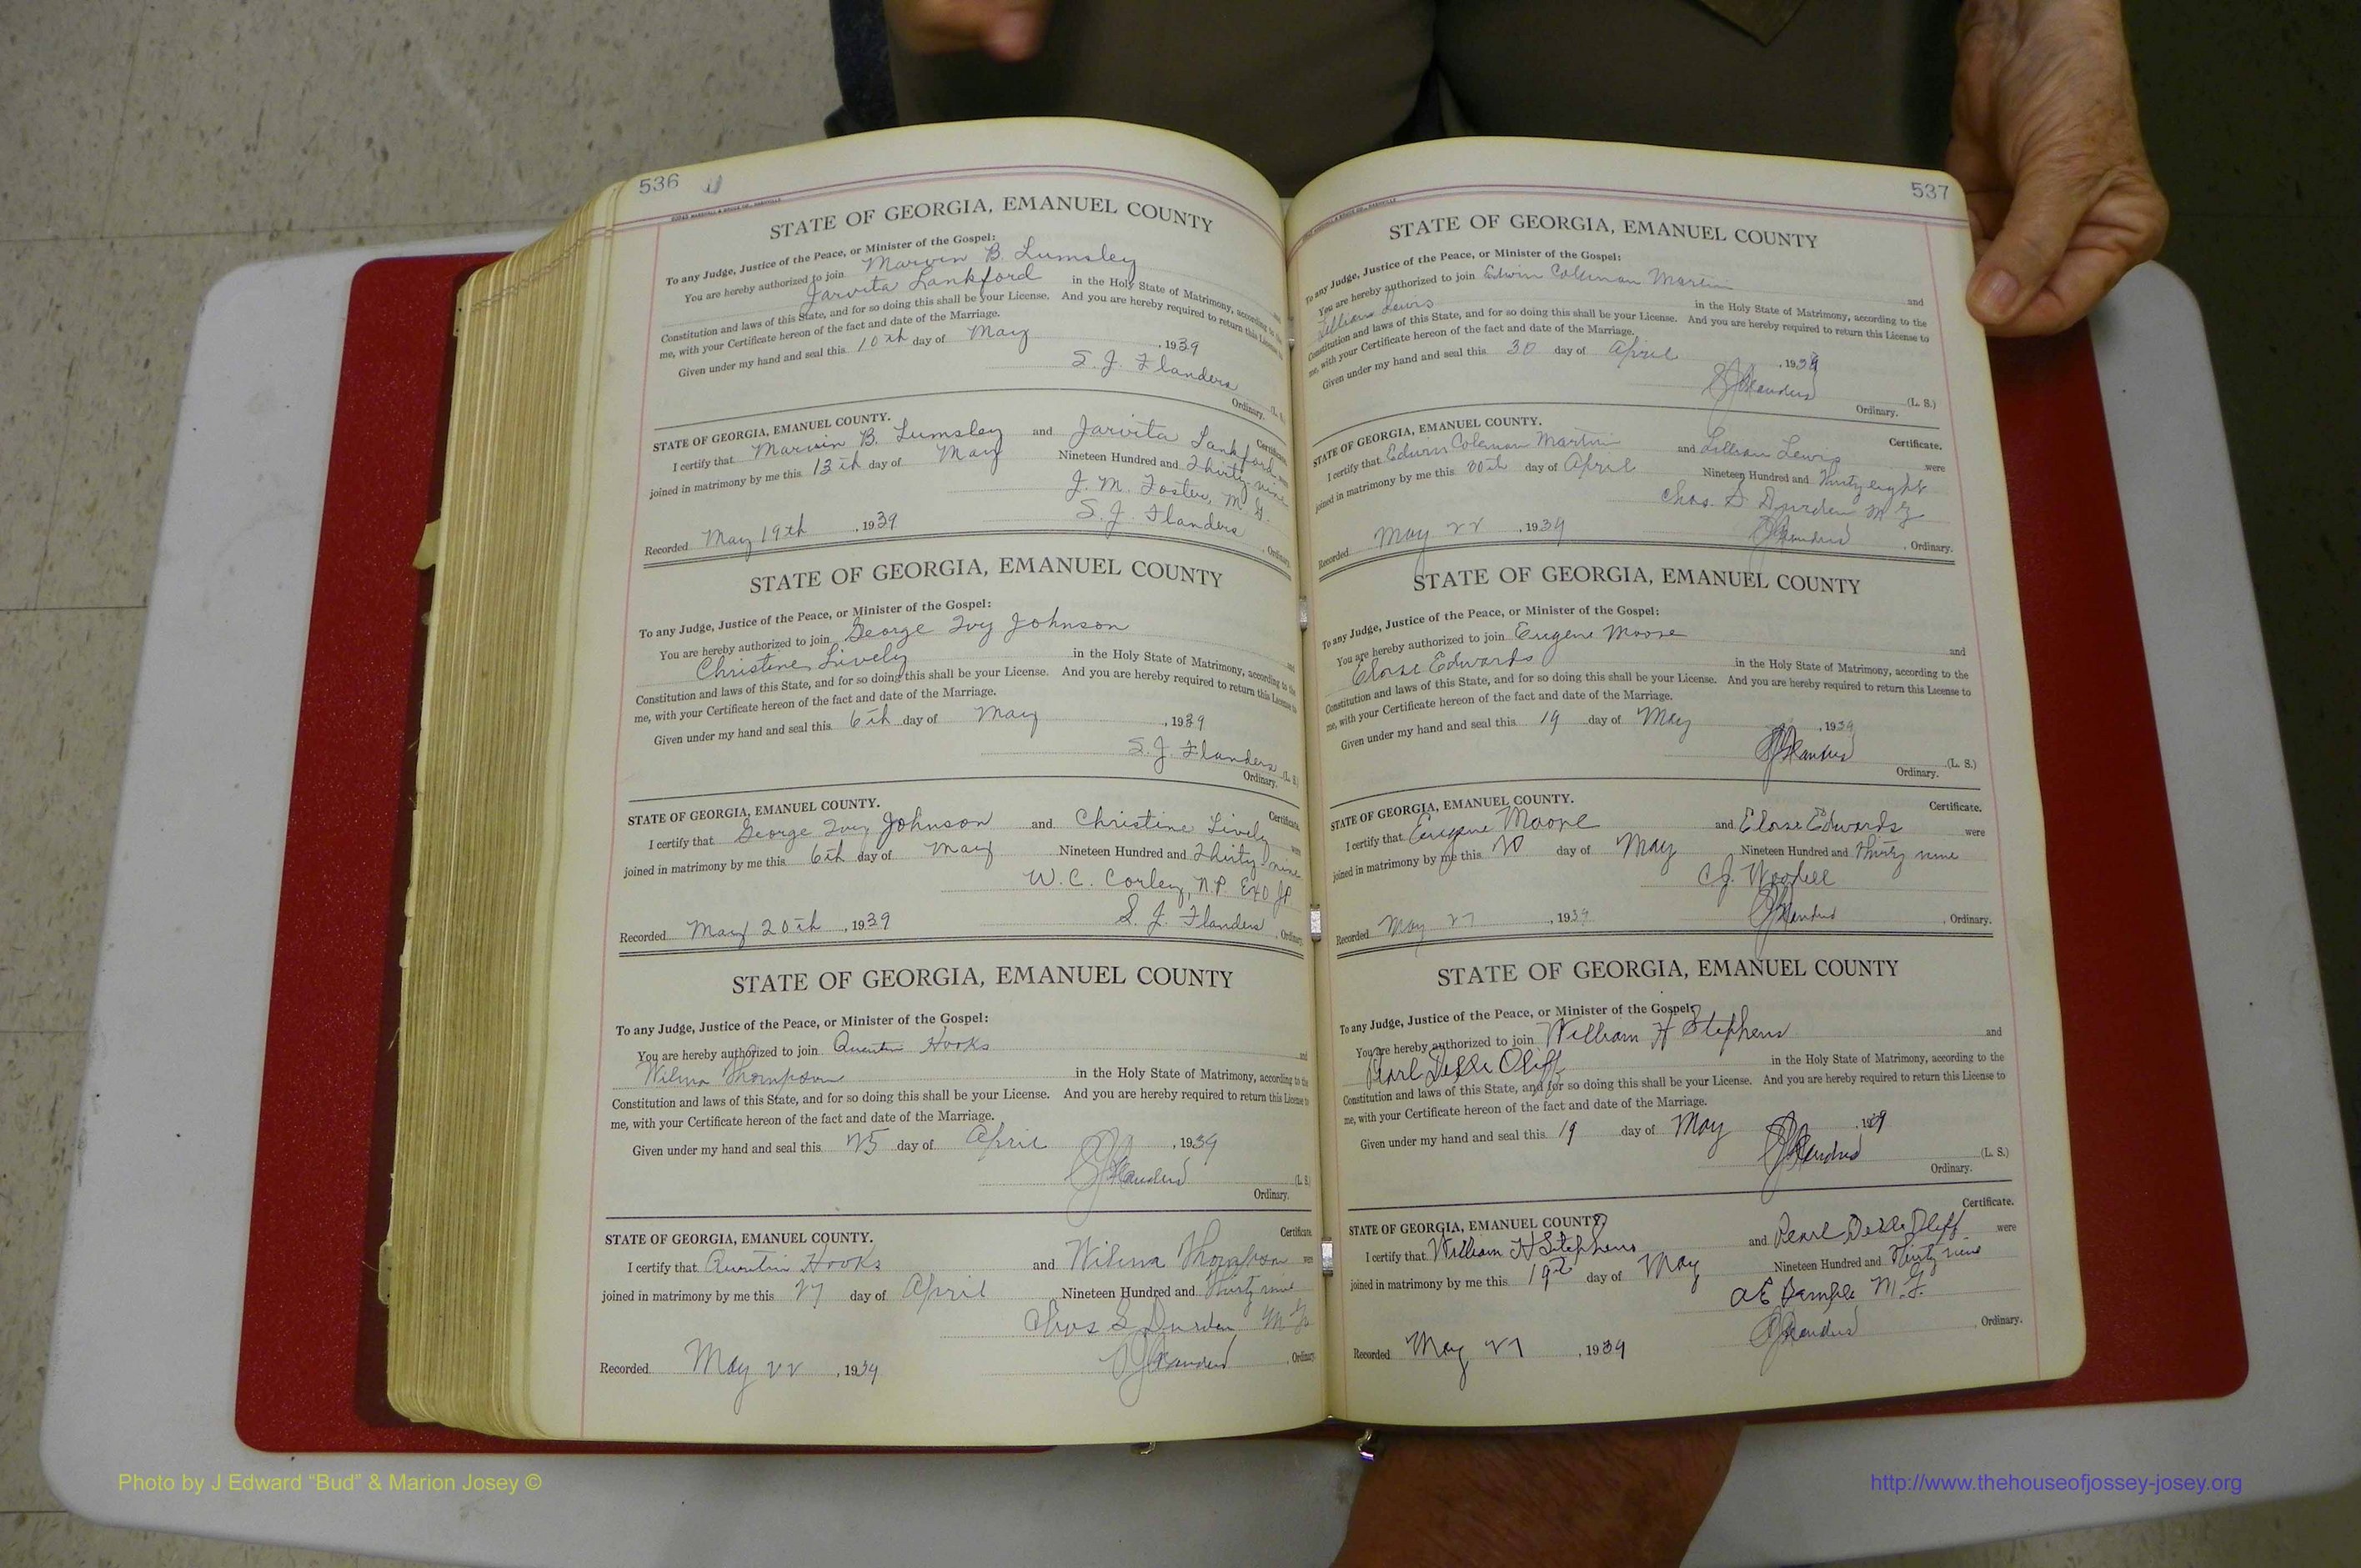 536
STATE OF GEORGIA, EMANUEL COUNTY
To any Judge, Justice of the Peace, or Minister of the Gospel:
You are hereby authorized to join Marvin B. Lumsley and
Jarvita Lankford in the Holy State of Matrimony, according to the
Constitution and laws of this State, and for so doing this shall be your License. And you are hereby required to return this License to
me, with your Certificate hereon of the fact and date of the Marriage.
Given under my hand and seal this 10th day of May, 1939
S. J. Flanders (L. S.
Ordinary.
STATE OF GEORGIA, EMANUEL COUNTY. Certificate.
I certify that Marvin B. Lumsley and Jarvita Lankford were
joined in matrimony by me this 13th day of May Nineteen Hundred and Thirty-nine
J. M. Foster, M. G.
Recorded May 19th, 1939 S. J. Flanders, Ordinary.
STATE OF GEORGIA, EMANUEL COUNTY
To any Judge, Justice of the Peace, or Minister of the Gospel:
You are hereby authorized to join George Ivy Johnson and
Christine Lively in the Holy State of Matrimony, according to the
Constitution and laws of this State, and for so doing this shall be your License. And you are hereby required to return this License to
me, with your Certificate hereon of the fact and date of the Marriage.
Given under my hand and seal this 6th day of May, 1939
S. J. Flanders (L. S.
Ordinary.
STATE OF GEORGIA, EMANUEL COUNTY. Certificate.
I certify that George Ivy Johnson and Christine Lively were
joined in matrimony by me this 6th day of May Nineteen Hundred and Thirty-nine
W. C. Corley, N.P. Exo JP
Recorded May 20th, 1939 S. J. Flanders, Ordinary
STATE OF GEORGIA, EMANUEL COUNTY
To any Judge, Justice of the Peace, or Minister of the Gospel:
You are hereby authorized to join Quentin Hooks and
Wilma Thompson in the Holy State of Matrimony, according to the
Constitution and laws of this State, and for so doing this shall be your License. And you are hereby required to return this License to
me, with your Certificate hereon of the fact and date of the Marriage.
Given under my hand and seal this 25 day of April, 1939
SJFlanders (L. S.
Ordinary.
STATE OF GEORGIA, EMANUEL COUNTY. Certificate.
I certify that Quentin Hooks and Wilma Thompson were
joined in matrimony by me this 27 day of April Nineteen Hundred and Thirty nine
Chas S Durden M G
Recorded May 22, 1939 SJFlanders, Ordinary
537
STATE OF GEORGIA, EMANUEL COUNTY
To any Judge, Justice of the Peace, or Minister of the Gospel:
You are hereby authorized to join Edwin Coleman Martin and
Lillian Lewis in the Holy State of Matrimony, according to the
Constitution and laws of this State, and for so doing this shall be your License. And you are hereby required to return this License to
me, with your Certificate hereon of the fact and date of the Marriage.
Given under my hand and seal this 30 day of April, 193
SJFlanders (L. S.)
Ordinary.
STATE OF GEORGIA, EMANUEL COUNTY. Certificate.
I certify that Edwin Coleman Martin and Lillian Lewis were
joined in matrimony by me this day of April Nineteen Hundred and Thirty eight
Chas. S Durden M G
Recorded May 22, 1939 SJFlanders, Ordinary.
STATE OF GEORGIA, EMANUEL COUNTY
To any Judge, Justice of the Peace, or Minister of the Gospel:
You are hereby authorized to join Eugene Moore and
Eloise Edwards in the Holy State of Matrimony, according to the
Constitution and laws of this State, and for so doing this shall be your License. And you are hereby required to return this License to
me, with your Certificate hereon of the fact and date of the Marriage.
Given under my hand and seal this 19 day of May, 1939
SJFlanders (L. S.)
Ordinary.
STATE OF GEORGIA, EMANUEL COUNTY. Certificate.
I certify that Eugene Moore and Eloise Edwards were
joined in matrimony by me this 20 day of May Nineteen Hundred and Thirty nine
C.J.
Recorded May 27, 1939 SJFlanders, Ordinary.
STATE OF GEORGIA, EMANUEL COUNTY
To any Judge, Justice of the Peace, or Minister of the Gospel:
You are hereby authorized to join William H Stephens and
Pearl Delle Oliff in the Holy State of Matrimony, according to the
Constitution and laws of this State, and for so doing this shall be your License. And you are hereby required to return this License to
me, with your Certificate hereon of the fact and date of the Marriage.
Given under my hand and seal this 19 day of May, 1939
SJFlanders (L. S.)
Ordinary.
STATE OF GEORGIA, EMANUEL COUNTY. Certificate.
I certify that William H Stephens and Pearl Delle Oliff were
joined in matrimony by me this 19 day of May Nineteen Hundred and Thirty nine
M. G.
Recorded May 27, 1939 SJFlanders, Ordinary.
Photo by J Edward “Bud” & Marion Josey ©
http://www.thehouseofjossey-josey.org